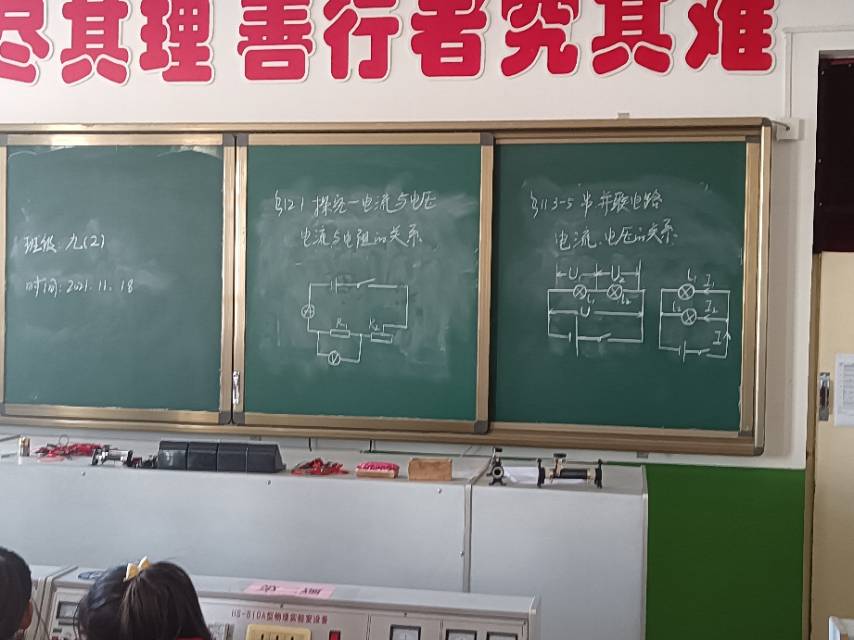 尽其理 善行者究其难
班级:九(2)
时间:2021.11.18
§12.1 探究一电流与电压
电流与电阻的关系
R1 R2
A
V
§11.3-5 串并联电路
电流、电压的关系
U1 U2
L1 L2
U
L1 I1
L2 I2
I
HS-810A型物理实验室设备